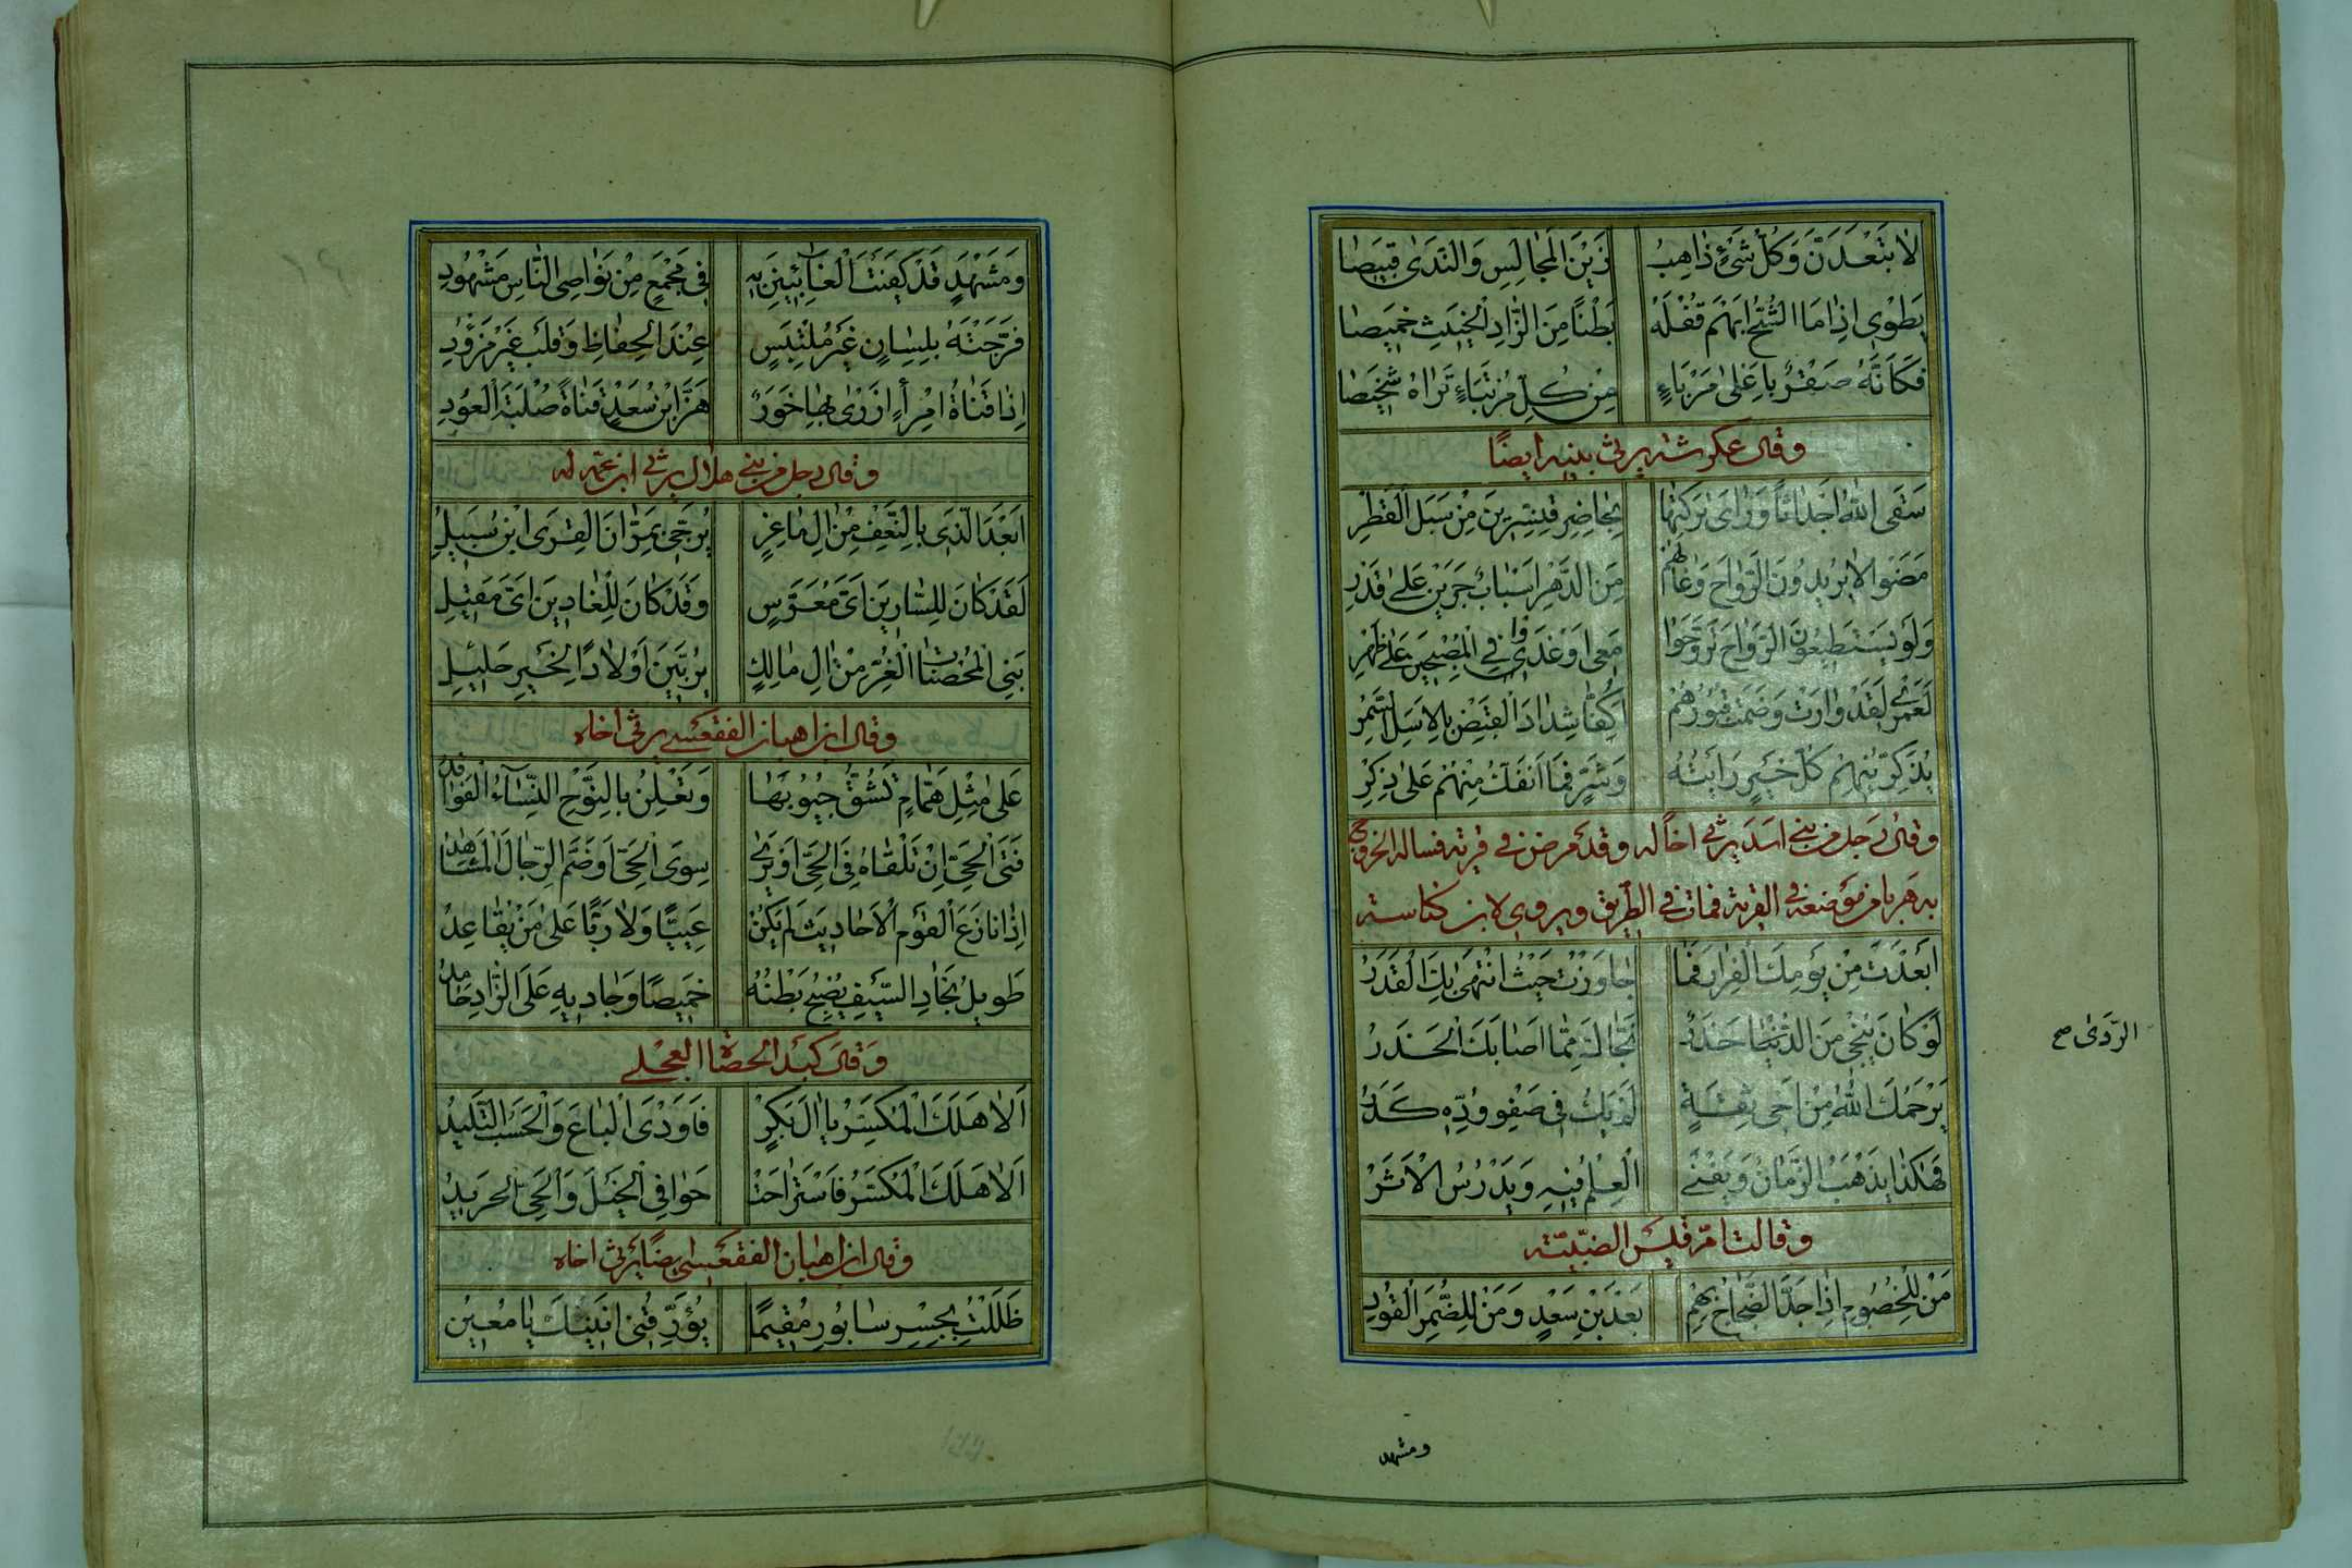 لا بَتْعَدَنَّ وَكُلُّ شَيْءٍ ذاهِبُ زَيْنَ الْمَجالِسِ وَالنَّدَىٰ قَبيصا
يَطْوي اِذا مَا الشُّحُّ ابهَمَ قُفْلَهُ بَطْنًا مِنَ الزّادِ الْخَبيثِ خَميصا
فَكَاَنَّهُ صَقْرٌ باعَلىٰ مَرْباءٍ مِنْ كُلِّ مُرْتَباءٍ تَراهُ شَخيصا
وقال عكرشه يرثى بنيه ايضًا
سَقَى اللهُ اَجْداثًا وَرائي تَرَكتُها بِحاضِرِ قِنِسْرينَ مِنْ سَبَلِ الْقَطْرِ
مَضَوا لا يُريدُونَ الرَّواحَ وَغالَهُم مِنَ الدَّهْرِ اَسْبابٌ جَرَيْنَ عَلىٰ قَدَرِ
وَلَو يَسْتَطيعُونَ الرَّواحَ تَرَوَّحَوْا مَعي اَوْ غَدَوْا فِي الْمُصْبِحينَ عَلىٰ ظَهْرِ
لَعَمْري لَقَدْ وارَتْ وَضَمَّتْ قُبُورُهُمْ اَكُفًّا شِدادَ الْقَبْضِ بِالاَسَلِ السُّمْرِ
يُذَكِّرُنِيهِمْ كُلُّ خَيْرٍ رَاَيْتُهُ وَشَرٍّ فَمَا اَنْفَكُّ مِنْهُمْ عَلىٰ ذِكْرِ
وقال رجل من بني اسد يرثي اخًا له وقد مرض في قرية فساله الخروج
به هربا من موضعه في القرية فمات في الطريق ويروى لابن كناسه
اَبْعَدْتَ مِنْ يَومِكَ الْفِرارَ فَما جاوَزْتَ حَيْثُ انْتَهىٰ بِكَ الْقَدَرُ
لَوْ كانَ يُنْجي مِنَ حَذَرٌ نَجّاكَ مِمّا اَصابَكَ الْحَذَرُ
الرَّدىٰ صح
يَرْحَمُكَ اللهُ مِنْ اَخي ثِقَةٍ لَمْ يَكُ في صَفْوِ وُدِّهِ كَدَرُ
فَهٰكَذا يَذْهَبُ الزَّمانُ وَيَفْنَى الْعِلْمُ فيهِ وَيَدْرُسُ الْاَثَرْ
وقالت امّ قيس الضبيّته
مَنْ لِلْخُصُومِ اِذا جَدَّ الضَّجاجُ بِهِمْ بَعْدَ بْنِ سَعْدٍ وَمَنْ لِلضُّمَّرِ الْقُودِ
ومشهد
وَمَشْهَدٍ قَدْ كَفَيْتَ الْغائِبينَ بِهِ في مَجْمَعٍ مِنْ نَواصِي النّاسِ مَشْهُودِ
فَرَّجْتَهُ بِلِسانٍ غَيْرِ مُلْتَبِسٍ عِنْدَ الْحِفاظِ وَقَلْبٍ غَيْرِ مَزْؤُدِ
اِذا قَناةُ امْرِأءٍ اَزْرىٰ بِها خَوَرٌ هَزَّ ابْنُ سَعْدٍ قَناةً صُلْبَةَ الْعُودِ
وقال رجل من بني هلال يرثي ابن عمّ له
اَبَعْدَ الَّذي بِالنَّعْفِ مِنْ الِ ماعِزٍ يُرَجّىٰ بِمَرّانَ الْقِرَى ابْنُ سَبيلِ
لَقَدْ كانَ لِلسّارينَ اَيَّ مُعَرَّسٍ وَقَدْ كانَ لِلْغادينَ اَيَّ مَقيلِ
بَنِي الْمُحْصَناتِ الْغُرِّ مِنْ الِ مالِكٍ يُرَبّينَ اَوْلادًا لِخَيْرِ حَليلِ
وقال ابن اهبان الفقعسي يرثى اخاه
عَلىٰ مِثْلِ هَمّامٍ تَشُقُّ جُيُوبَها وَتُعْلِنُ بِالنَّوْحِ النِّسآءُ الْفَواقِدُ
فَتَى الْحَيِّ اِنْ تَلْقاهُ فِي الْحَيِّ اَوْ يُرىٰ سِوَى الْحَيِّ اَوْ ضَمَّ الرِّجالَ الْمَشاهِدُ
اِذا نازَعَ الْقَوْمَ الْاَحاديثَ لَمْ يَكُنْ عَيِيًّا وَلا رَبًّا عَلىٰ مَنْ يُقاعِدُ
طَويلُ نِجادِ السَّيْفِ يُصْبِحُ بَطْنُهُ خَميصًا وَجاديهِ عَلَى الزّادِ حامِدُ
وَقال كبد الحصاة العجلي
اَلا هَلَكَ الْمُكَسِّرُ يا الَ بَكْرٍ فَاَوْدَى الْباعُ وَالْحَسَبُ التَّليدُ
اَلا هَلَكَ الْمُكَسِّرُ فَاسْتَراحَتْ حَوافِي الْخَيْلِ وَالْحَيُّ الْحَريدُ
وقال ابن اهبان الفقعسى ايضًا يرثى اخاه
ظَلَلْتُ بِجِسْرِ سابُورٍ مُقيمًا يُؤَرِّقُني اَنينُكَ يا مُعينُ